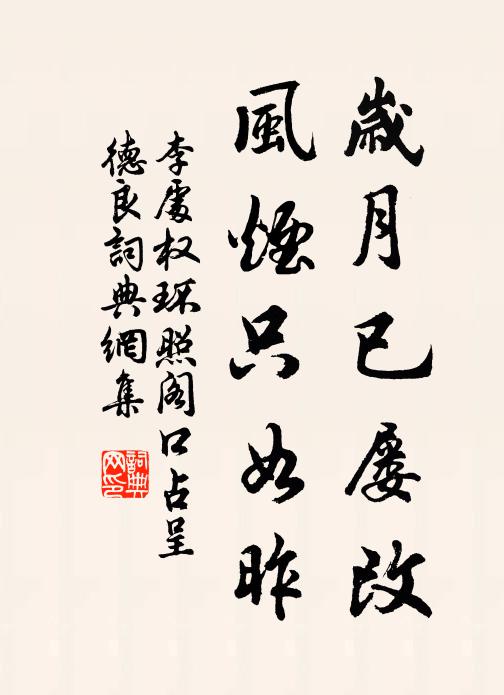 歲月已屢改
風煙只如昨
李處权环照阁口占呈
德良詞典網集
詞典
网印